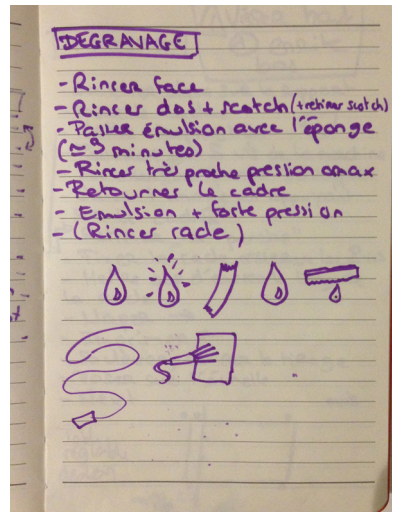 DEGRAVAGE
- Rincer face
- Rincer dos + scotch (+ retirer scotch)
- Passer émulsion avec l'éponge
(≃ 3 minutes)
- Rincer très proche pression &max
- Retourner le cadre
- Emulsion + forte pression
- (Rincer racle)